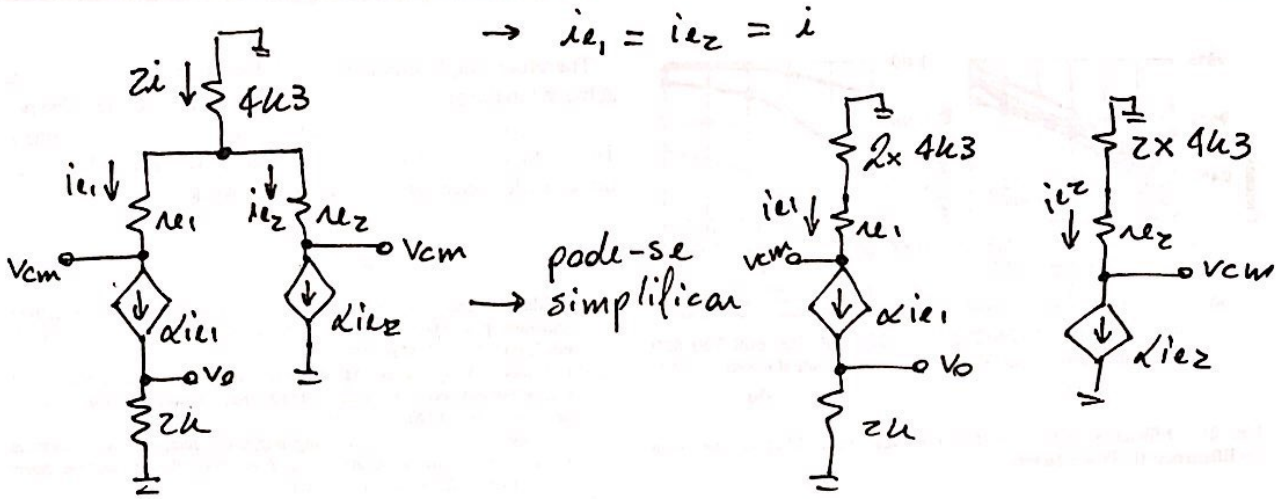 → ie1 = ie2 = i
2i ↓ 4k3
ie1 ↓ re1
ie2 ↓ re2
Vcm
Vcm
αie1
αie2
Vo
2k
→ pode-se
simplificar
2x 4k3
ie1 ↓ re1
Vcm
αie1
Vo
2k
2x 4k3
ie2 ↓ re2
Vcm
αie2